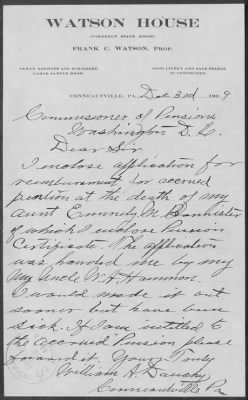 WATSON HOUSE
(FORMERLY STATE HOUSE)
FRANK C. WATSON, PROP.
NEWLY ROOFED AND FURNISHED. GOOD LIVERY AND SALE STABLE
LARGE SAMPLE ROOM. IN CONNECTION.
CONNEAUTVILLE, PA., Dec 3rd 1909
Commissioner of Pensions
Washington D.C.
Dear Sir
I inclose application for
reimbursement for accrued
pension at the death of my
Aunt M. Bannister
of which I inclose Pension
Certificate. The application
was handed me by my
My Uncle W. H.
I would made it out
sooner but have been
sick. If I am entitled to
the accrued Pension please
forward it. Yours Truly
William A.
Conneautville Pa